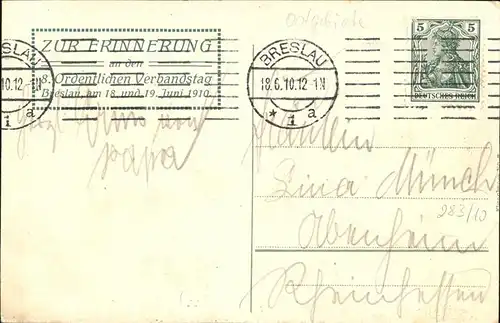 Ostgebiete
ZUR ERINNERUNG
an den
8. Ordentlichen Verbandstag
Breslau, am 18. und 19. Juni 1910.
BRESLAU
18.6.10.12-1N
* 1 a
BRESLAU
.10.12-1N
1 a
5 5
DEUTSCHES REICH
Gruß von
Papa
Fräulein
Lina Münch
Abenheim
Rheinhessen
283/10